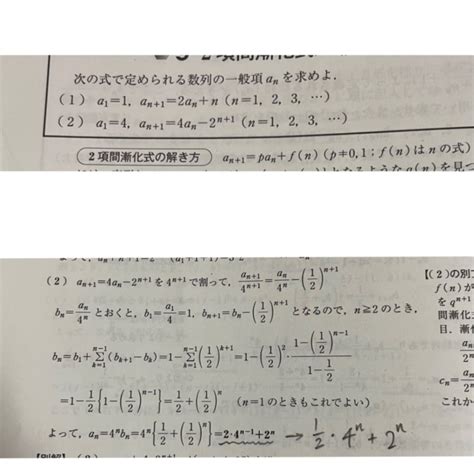 2項間漸化式
次の式で定められる数列の一般項 aₙ を求めよ.
(1) a₁=1, aₙ₊₁=2aₙ+n (n=1, 2, 3, …)
(2) a₁=4, aₙ₊₁=4aₙ-2ⁿ⁺¹ (n=1, 2, 3, …)
2項間漸化式の解き方 aₙ₊₁=paₙ+f(n) (p≠0, 1; f(n)はnの式)
(2) aₙ₊₁=4aₙ-2ⁿ⁺¹ を 4ⁿ⁺¹ で割って, aₙ₊₁/4ⁿ⁺¹=aₙ/4ⁿ-(1/2)ⁿ⁺¹
【(2)の別
f(n)が
bₙ=aₙ/4ⁿ とおくと, b₁=a₁/4=1, bₙ₊₁=bₙ-(1/2)ⁿ⁺¹ となるので, n≧2のとき,
を qⁿ⁺¹
間漸化
目. 漸
bₙ=b₁+Σ[k=1→n-1](bₖ₊₁-bₖ)=1-Σ[k=1→n-1](1/2)ᵏ⁺¹=1-(1/2)²・{1-(1/2)ⁿ⁻¹}/(1-1/2)
=1-1/2{1-(1/2)ⁿ⁻¹}=1/2+(1/2)ⁿ (n=1のときもこれでよい)
cₙ=
これか
よって, aₙ=4ⁿbₙ=4ⁿ{1/2+(1/2)ⁿ}=2・4ⁿ⁻¹+2ⁿ → 1/2・4ⁿ+2ⁿ